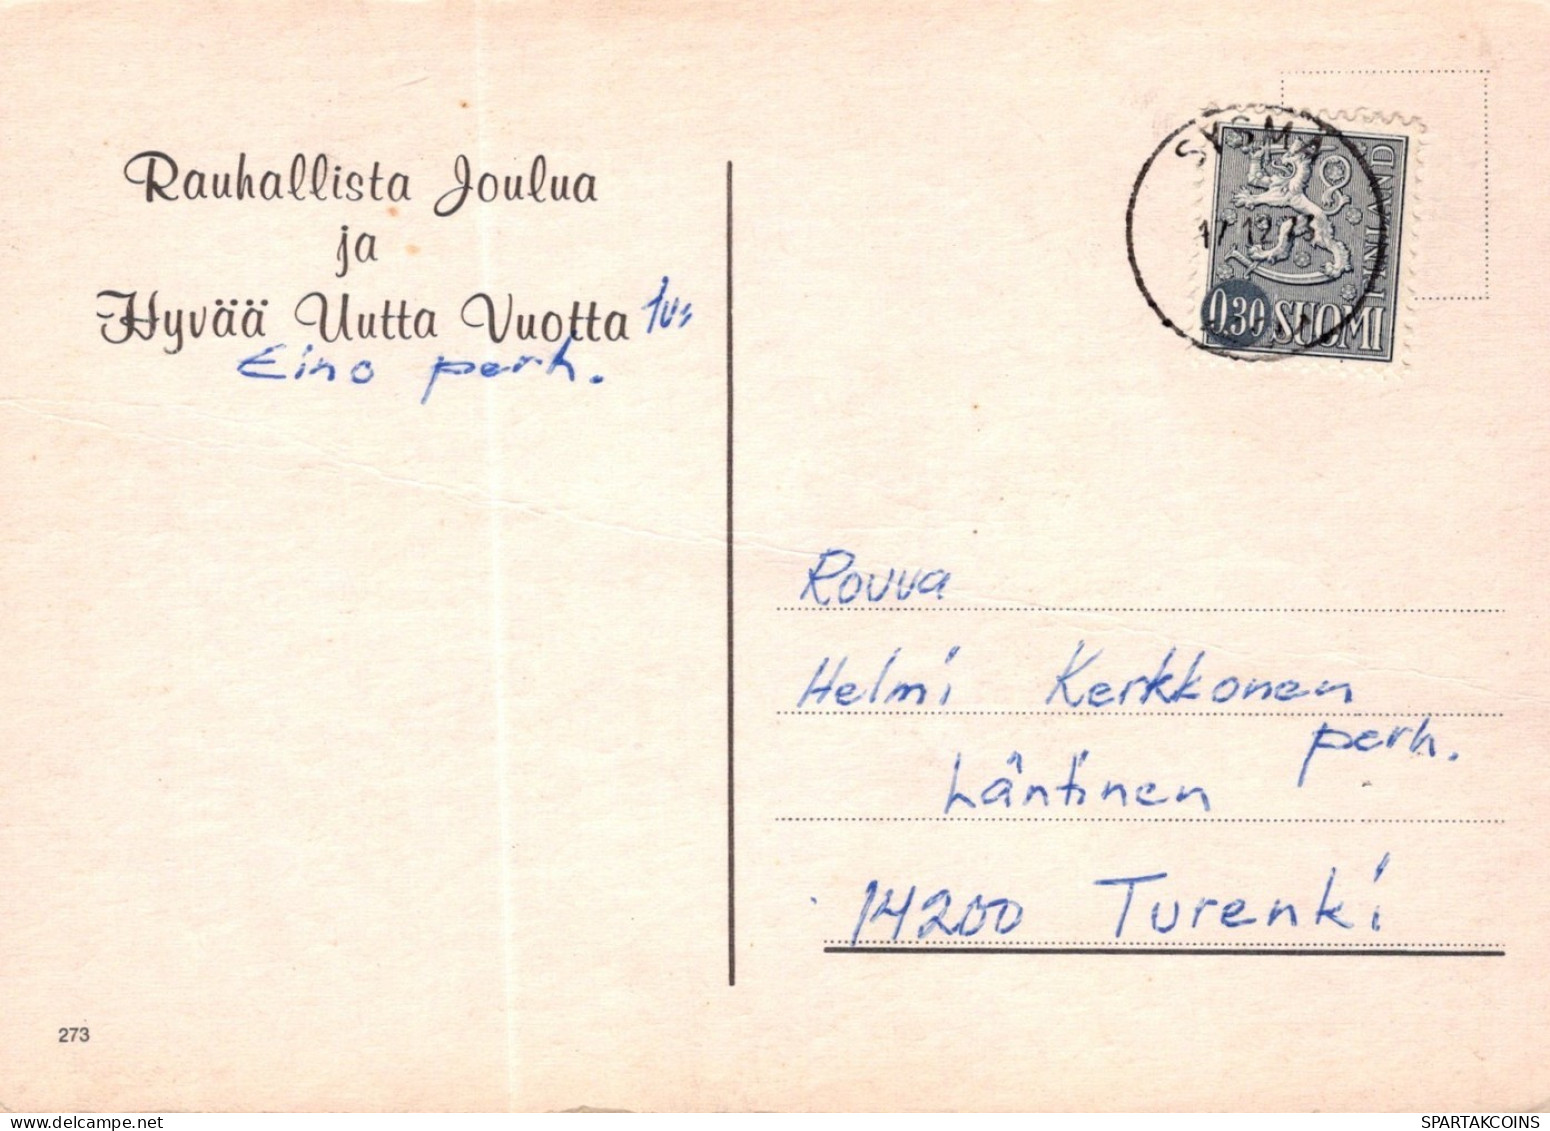 Rauhallista Joulua
ja
Hyvää Uutta Vuotta
Eino perh.
273
SYSMÄ
17.12.73
FINLAND
0.30 SUOMI
Rouva
Helmi Kerkkonen
perh.
Läntinen
14200 Turenki
delcampe.net
SPARTAKCOINS